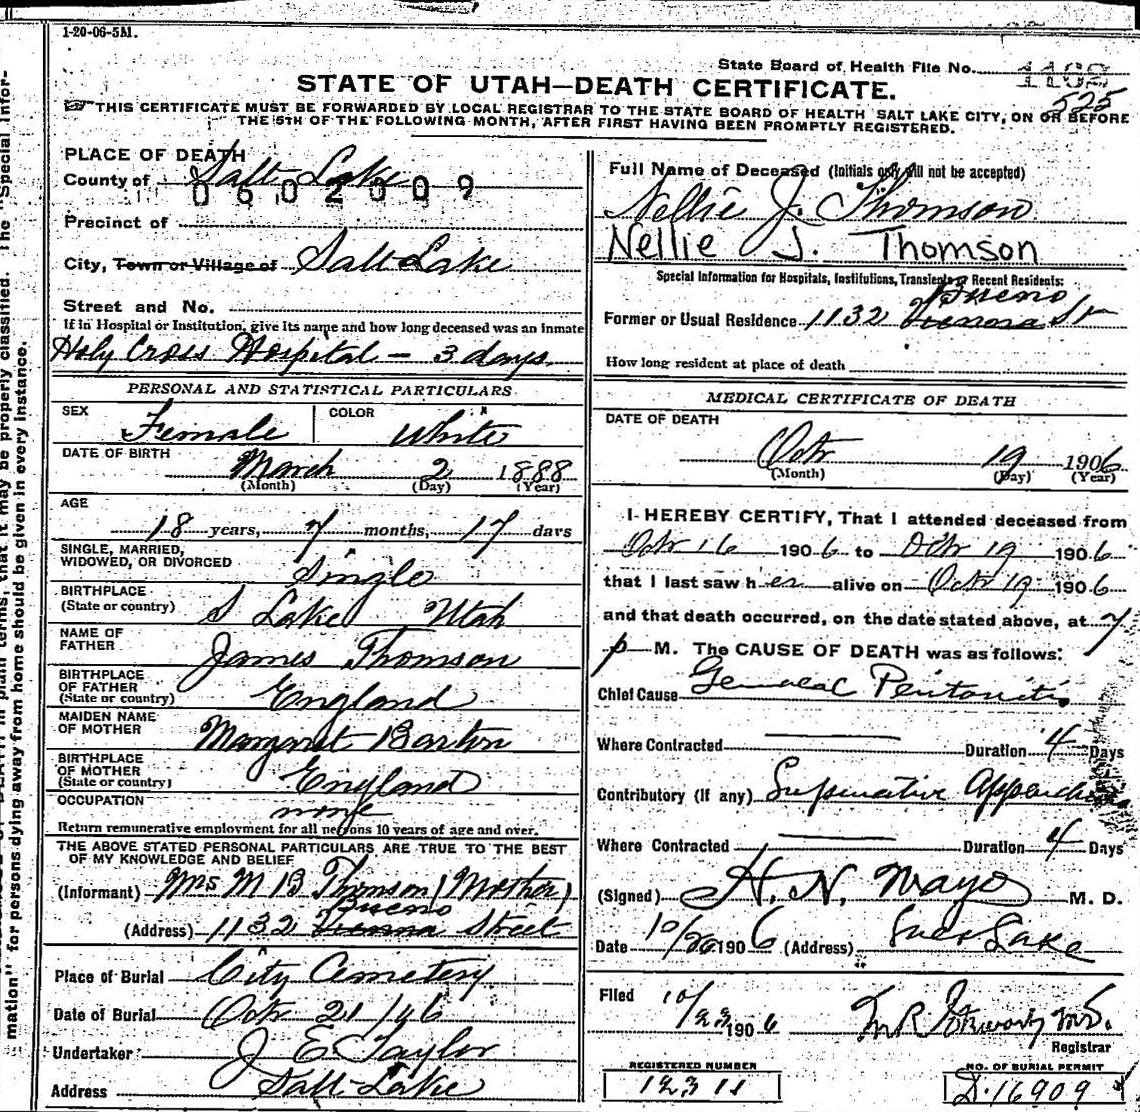 1-20-06-5M.
State Board of Health File No. 1162
525
STATE OF UTAH—DEATH CERTIFICATE.
THIS CERTIFICATE MUST BE FORWARDED BY LOCAL REGISTRAR TO THE STATE BOARD OF HEALTH SALT LAKE CITY, ON OR BEFORE
THE 5TH OF THE FOLLOWING MONTH, AFTER FIRST HAVING BEEN PROMPTLY REGISTERED.
PLACE OF DEATH
County of Salt Lake
0602009
Precinct of
City, Town or Village of Salt Lake
Street and No.
If in Hospital or Institution, give its name and how long deceased was an inmate
Holy Cross Hospital - 3 days
PERSONAL AND STATISTICAL PARTICULARS
SEX Female COLOR White
DATE OF BIRTH
March 2 1888
(Month) (Day) (Year)
AGE
18 years, 7 months, 17 days
SINGLE, MARRIED,
WIDOWED, OR DIVORCED Single
BIRTHPLACE
(State or country) S Lake Utah
NAME OF
FATHER James Thomson
BIRTHPLACE
OF FATHER
(State or country) England
MAIDEN NAME
OF MOTHER Margaret Barton
BIRTHPLACE
OF MOTHER
(State or country) England
OCCUPATION none
Return remunerative employment for all persons 10 years of age and over.
THE ABOVE STATED PERSONAL PARTICULARS ARE TRUE TO THE BEST
OF MY KNOWLEDGE AND BELIEF
(Informant) Mrs M B Thomson (Mother)
Bueno
(Address) 1132 Vienna Street
Place of Burial City Cemetery
Date of Burial Octr 21/06
Undertaker J E Taylor
Address Salt Lake
Full Name of Deceased (Initials only will not be accepted)
Nellie J. Thomson
Nellie J. Thomson
Special Information for Hospitals, Institutions, Transients or Recent Residents:
Bueno
Former or Usual Residence 1132 St
How long resident at place of death
MEDICAL CERTIFICATE OF DEATH
DATE OF DEATH
Octr 19 1906
(Month) (Day) (Year)
I HEREBY CERTIFY, That I attended deceased from
Octr 16 1906 to Octr 19 1906
that I last saw her alive on Octr 19 1906
and that death occurred, on the date stated above, at 7
p M. The CAUSE OF DEATH was as follows:
Chief Cause General Peritonitis
Where Contracted Duration 4 Days
Contributory (If any) Suppurative
Where Contracted Duration 4 Days
(Signed) H. N. Mayo M. D.
Date 10/20 1906 (Address) Salt Lake
Filed 10/22 1906
Registrar
REGISTERED NUMBER
12311
NO. OF BURIAL PERMIT
D.16909
mation" for persons dying away from home should be given in every instance.
in plain terms, that it may be properly classified. The "Special Infor-